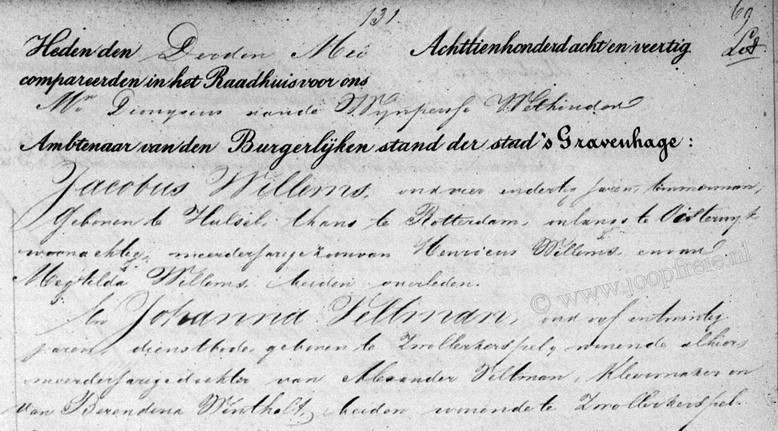 131.
69
Heden den Derden Mei Achttienhonderd acht en veertig
compareerden in het Raadhuis voor ons
Mr. Dionysius van de Wijnpersse Wethouder
Ambtenaar van den Burgerlijken stand der stad 's Gravenhage:
Jacobus Willems, oud vier en dertig jaren, timmerman,
geboren te Hulsel, thans te Rotterdam, onlangs te Oisterwijk
woonachtig, meerderjarige zoon van Henricus Willems, en van
Megtilda Willems, beiden overleden.
En Johanna Veltman, oud vijf en twintig
jaren, dienstbode, geboren te Zwollerkerspel, wonende alhier,
meerderjarige dochter van Alexander Veltman, Kleermaker en
van Berendina Wintholt, beiden wonende te Zwollerkerspel.
© www.joopfreie.nl